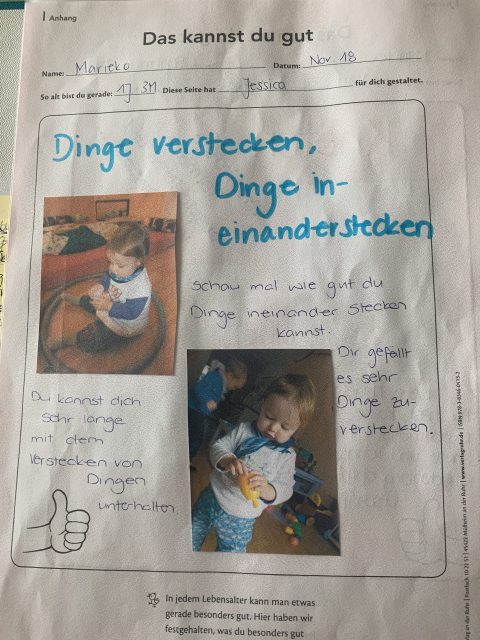 Anhang
Das kannst du gut
Name: Marieko Datum: Nov. 18
So alt bist du gerade: 1J 3M. Diese Seite hat Jessica für dich gestaltet.
Dinge verstecken,
Dinge in-
einanderstecken
Schau mal wie gut du
Dinge ineinander stecken
kannst.
Dir gefällt
es sehr
Dinge zu-
verstecken.
Du kannst dich
sehr lange
mit dem
Verstecken von
Dingen
unterhalten.
In jedem Lebensalter kann man etwas
gerade besonders gut. Hier haben wir
festgehalten, was du besonders gut